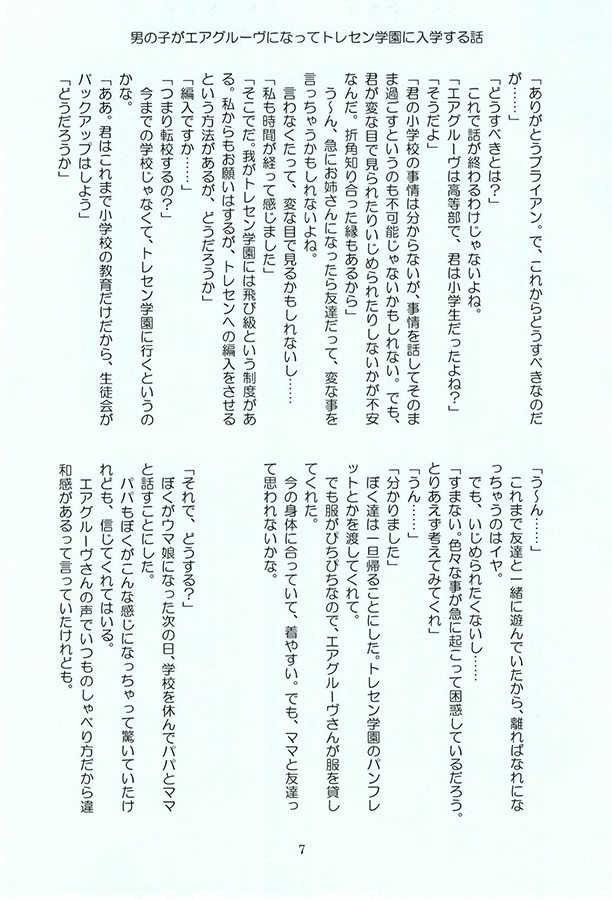 男の子がエアグルーヴになってトレセン学園に入学する話
「ありがとうブライアン。で、これからどうすべきなのだ
が……」
「どうすべきとは？」
これで話が終わるわけじゃないよね。
「エアグルーヴは高等部で、君は小学生だったよね？」
「そうだよ」
「君の小学校の事情は分からないが、事情を話してそのま
ま過ごすというのも不可能じゃないかもしれない。でも、
君が変な目で見られたりいじめられたりしないかが不安
なんだ。折角知り合った縁もあるから」
う～ん、急にお姉さんになったら友達だって、変な事を
言っちゃうかもしれないよね。
言わなくたって、変な目で見るかもしれないし……
「私も時間が経って感じました」
「そこでだ。我がトレセン学園には飛び級という制度があ
る。私からもお願いはするが、トレセンへの編入をさせる
という方法があるが、どうだろうか」
「編入ですか……」
「つまり転校するの？」
今までの学校じゃなくて、トレセン学園に行くというの
かな。
「ああ。君はこれまで小学校の教育だけだから、生徒会が
バックアップはしよう」
「どうだろうか」
「う～ん……」
これまで友達と一緒に遊んでいたから、離ればなれにな
っちゃうのはイヤ。
でも、いじめられたくないし……
「すまない。色々な事が急に起こって困惑しているだろう。
とりあえず考えてみてくれ」
「うん……」
「分かりました」
ぼく達は一旦帰ることにした。トレセン学園のパンフレ
ットとかを渡してくれて。
でも服がぴちぴちなので、エアグルーヴさんが服を貸し
てくれた。
今の身体に合っていて、着やすい。でも、ママと友達っ
て思われないかな。
「それで、どうする？」
ぼくがウマ娘になった次の日、学校を休んでパパとママ
と話すことにした。
パパもぼくがこんな感じになっちゃって驚いていたけ
れども、信じてくれてはいる。
エアグルーヴさんの声でいつものしゃべり方だから違
和感があるって言っていたけれども。
7